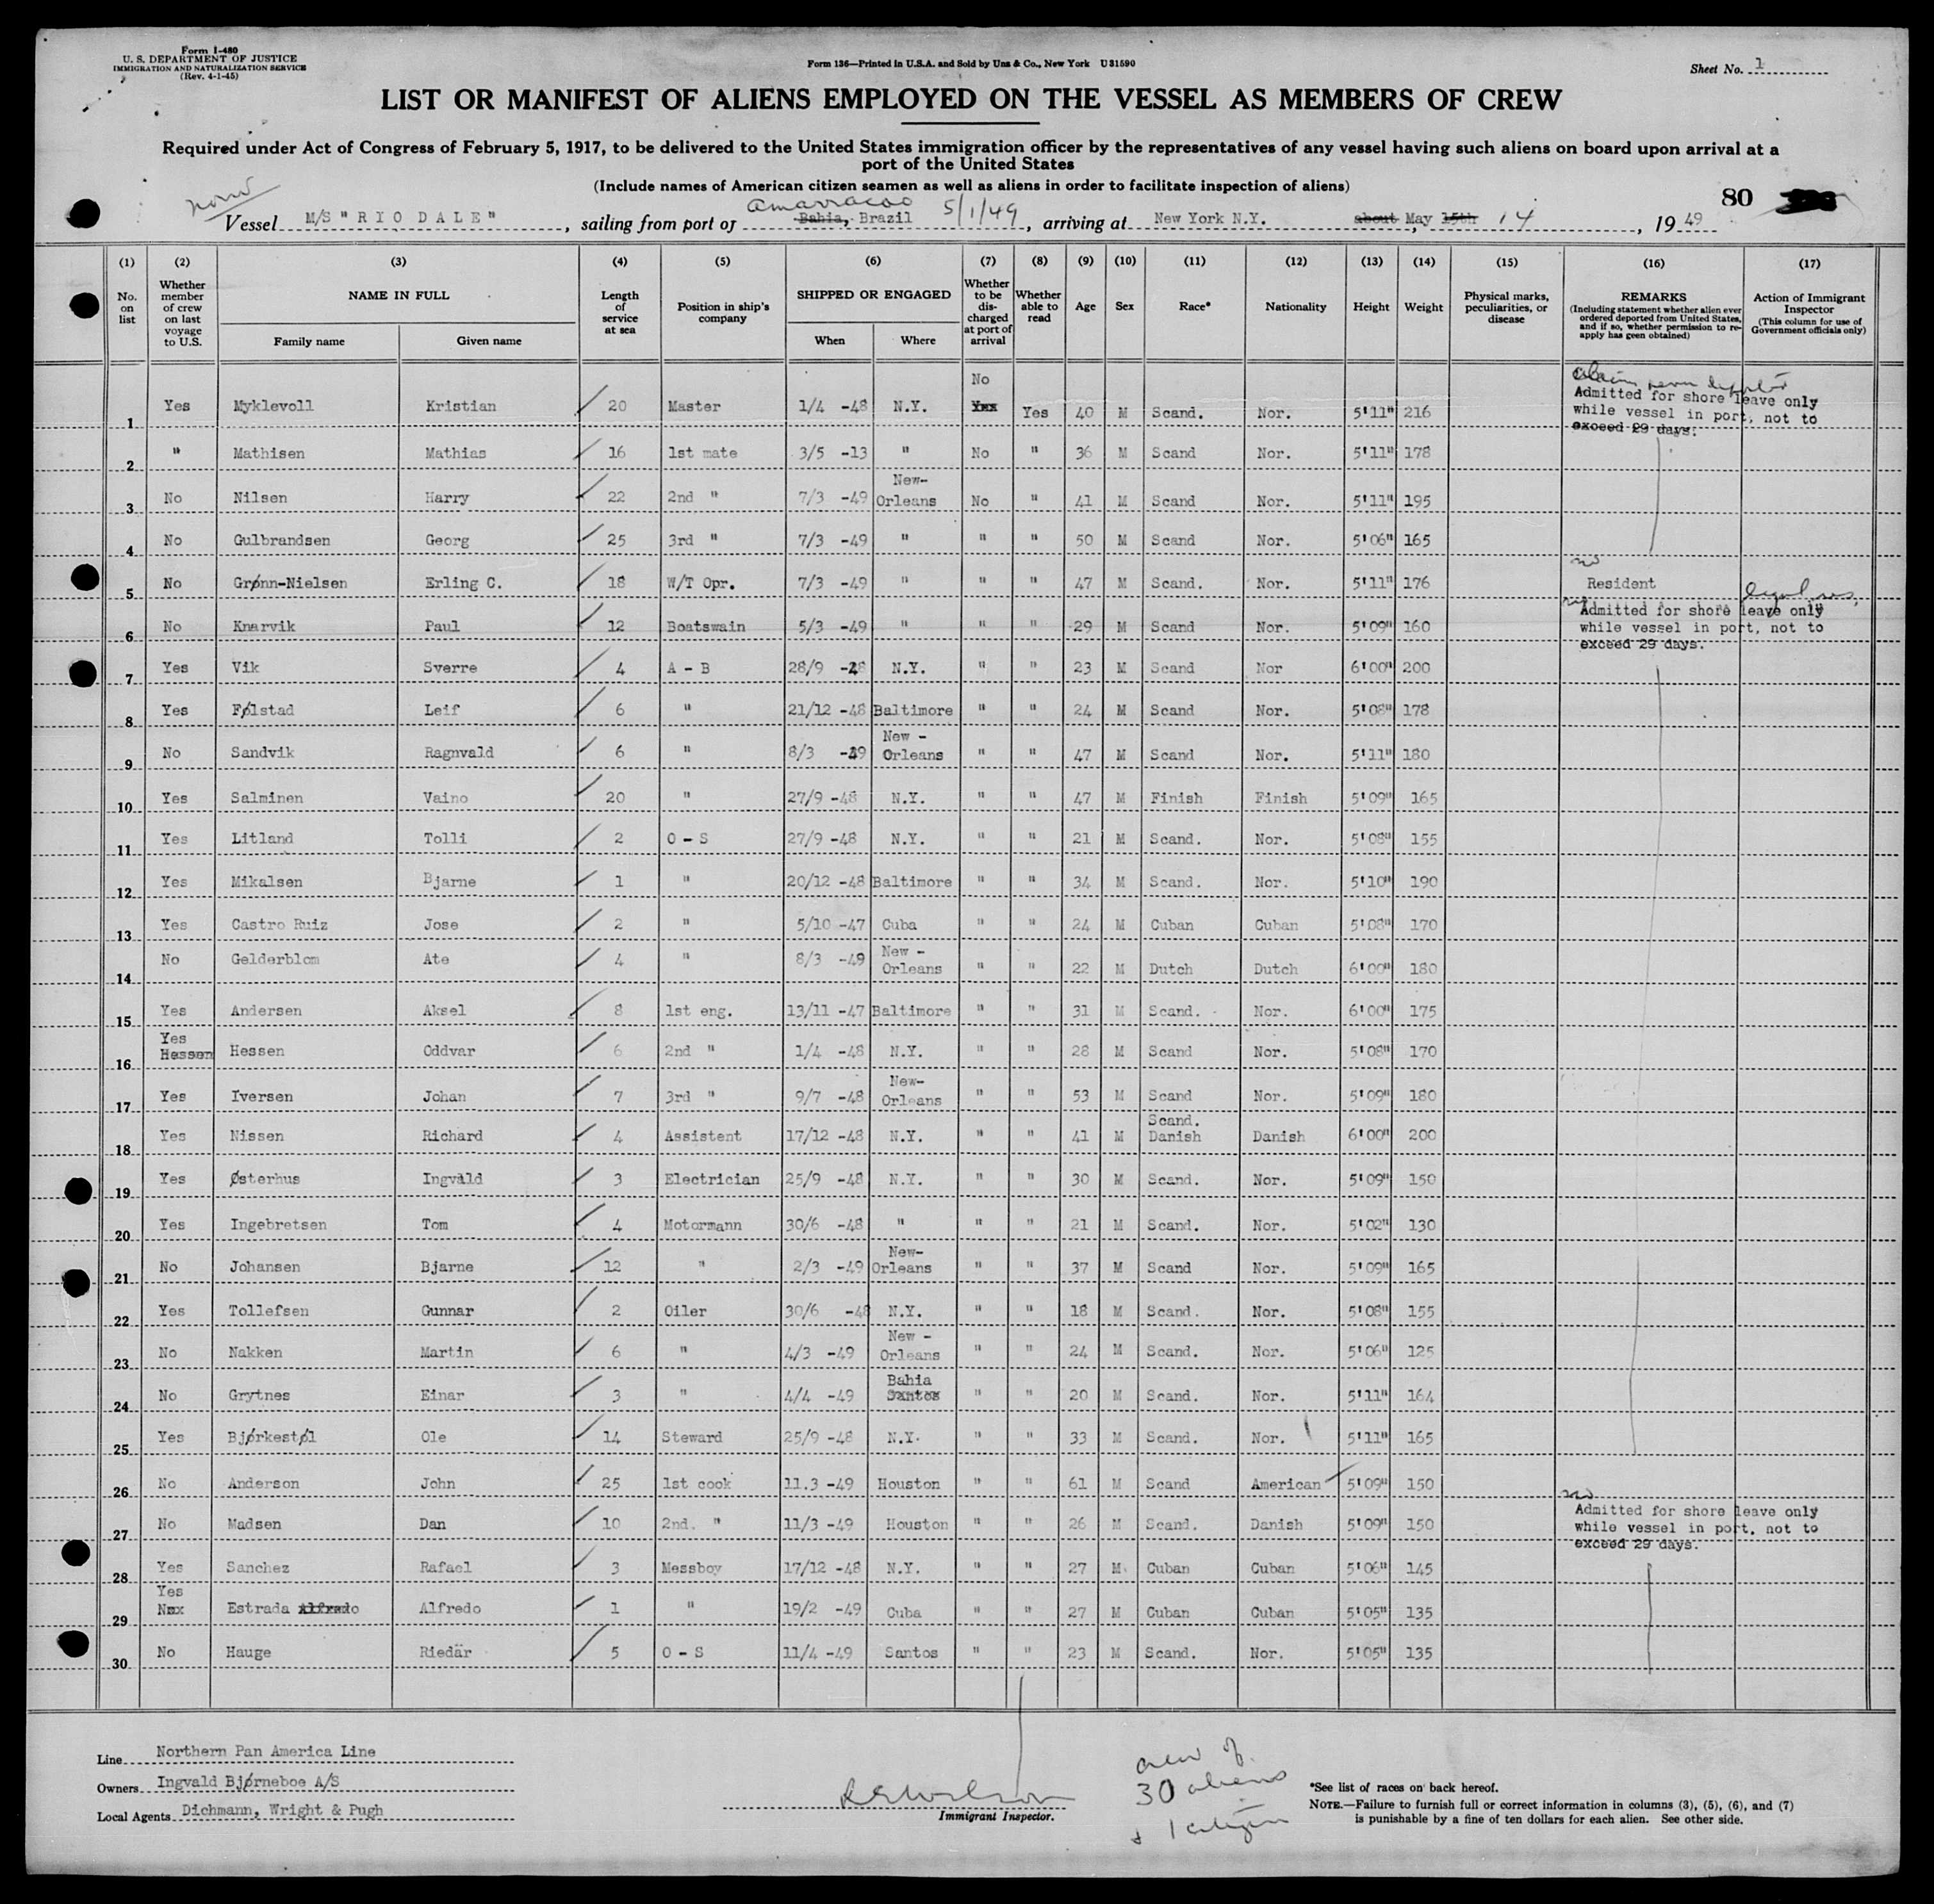 Form I-480
U. S. DEPARTMENT OF JUSTICE
IMMIGRATION AND NATURALIZATION SERVICE
(Rev. 4-1-45)
Form 136—Printed in U.S.A. and Sold by Unz & Co., New York U31590
Sheet No. 1
LIST OR MANIFEST OF ALIENS EMPLOYED ON THE VESSEL AS MEMBERS OF CREW
Required under Act of Congress of February 5, 1917, to be delivered to the United States immigration officer by the representatives of any vessel having such aliens on board upon arrival at a
port of the United States
(Include names of American citizen seamen as well as aliens in order to facilitate inspection of aliens)
80
Vessel M/S "RIO DALE", sailing from port of Bahia, Brazil 5/1/49, arriving at New York N.Y. about May 15th 14, 1949
(1) (2) (3) (4) (5) (6) (7) (8) (9) (10) (11) (12) (13) (14) (15) (16) (17)
No. on list
Whether member of crew on last voyage to U.S.
NAME IN FULL
Family name Given name
Length of service at sea
Position in ship's company
SHIPPED OR ENGAGED
When Where
Whether to be discharged at port of arrival
Whether able to read
Age
Sex
Race*
Nationality
Height
Weight
Physical marks, peculiarities, or disease
REMARKS
(Including statement whether alien ever ordered deported from United States, and if so, whether permission to re-apply has geen obtained)
Action of Immigrant Inspector
(This column for use of Government officials only)
1 Yes Myklevoll Kristian 20 Master 1/4 -48 N.Y. No Yes Yes 40 M Scand. Nor. 5'11" 216
Admitted for shore leave only
while vessel in port, not to
exceed 29 days.
2 " Mathisen Mathias 16 1st mate 3/5 -13 " No " 36 M Scand Nor. 5'11" 178
3 No Nilsen Harry 22 2nd " 7/3 -49 New-Orleans No " 41 M Scand Nor. 5'11" 195
4 No Gulbrandsen Georg 25 3rd " 7/3 -49 " " " 50 M Scand Nor. 5'06" 165
5 No Grønn-Nielsen Erling C. 18 W/T Opr. 7/3 -49 " " " 47 M Scand. Nor. 5'11" 176 no Resident
6 No Knarvik Paul 12 Boatswain 5/3 -49 " " " 29 M Scand Nor. 5'09" 160
Admitted for shore leave only
while vessel in port, not to
exceed 29 days.
7 Yes Vik Sverre 4 A - B 28/9 -48 N.Y. " " 23 M Scand Nor 6'00" 200
8 Yes Følstad Leif 6 " 21/12 -48 Baltimore " " 24 M Scand Nor. 5'08" 178
9 No Sandvik Ragnvald 6 " 8/3 -49 New - Orleans " " 47 M Scand Nor. 5'11" 180
10 Yes Salminen Vaino 20 " 27/9 -48 N.Y. " " 47 M Finish Finish 5'09" 165
11 Yes Litland Tolli 2 O - S 27/9 -48 N.Y. " " 21 M Scand. Nor. 5'08" 155
12 Yes Mikalsen Bjarne 1 " 20/12 -48 Baltimore " " 34 M Scand. Nor. 5'10" 190
13 Yes Castro Ruiz Jose 2 " 5/10 -47 Cuba " " 24 M Cuban Cuban 5'08" 170
14 No Gelderblom Ate 4 " 8/3 -49 New - Orleans " " 22 M Dutch Dutch 6'00" 180
15 Yes Andersen Aksel 8 1st eng. 13/11 -47 Baltimore " " 31 M Scand. Nor. 6'00" 175
16 Yes Hessen Hessen Oddvar 6 2nd " 1/4 -48 N.Y. " " 28 M Scand Nor. 5'08" 170
17 Yes Iversen Johan 7 3rd " 9/7 -48 New-Orleans " " 53 M Scand Nor. 5'09" 180
18 Yes Nissen Richard 4 Assistent 17/12 -48 N.Y. " " 41 M Scand. Danish Danish 6'00" 200
19 Yes Østerhus Ingvald 3 Electrician 25/9 -48 N.Y. " " 30 M Scand. Nor. 5'09" 150
20 Yes Ingebretsen Tom 4 Motormann 30/6 -48 " " " 21 M Scand. Nor. 5'02" 130
21 No Johansen Bjarne 12 " 2/3 -49 New-Orleans " " 37 M Scand Nor. 5'09" 165
22 Yes Tollefsen Gunnar 2 Oiler 30/6 -48 N.Y. " " 18 M Scand. Nor. 5'08" 155
23 No Nakken Martin 6 " 4/3 -49 New - Orleans " " 24 M Scand. Nor. 5'06" 125
24 No Grytnes Einar 3 " 4/4 -49 Bahia Santos " " 20 M Scand. Nor. 5'11" 164
25 Yes Bjørkestøl Ole 14 Steward 25/9 -48 N.Y. " " 33 M Scand. Nor. 5'11" 165
26 No Anderson John 25 1st cook 11.3 -49 Houston " " 61 M Scand American 5'09" 150
27 No Madsen Dan 10 2nd. " 11/3 -49 Houston " " 26 M Scand. Danish 5'09" 150
no
Admitted for shore leave only
while vessel in port, not to
exceed 29 days.
28 Yes Sanchez Rafael 3 Messboy 17/12 -48 N.Y. " " 27 M Cuban Cuban 5'06" 145
29 Yes Estrada Alfredo Alfredo 1 " 19/2 -49 Cuba " " 27 M Cuban Cuban 5'05" 135
30 No Hauge Riedär 5 O - S 11/4 -49 Santos " " 23 M Scand. Nor. 5'05" 135
Line Northern Pan America Line
Owners Ingvald Bjørneboe A/S
Local Agents Dichmann, Wright & Pugh
Immigrant Inspector.
crew of
30 aliens
& 1 citizen
*See list of races on back hereof.
NOTE.—Failure to furnish full or correct information in columns (3), (5), (6), and (7)
is punishable by a fine of ten dollars for each alien. See other side.